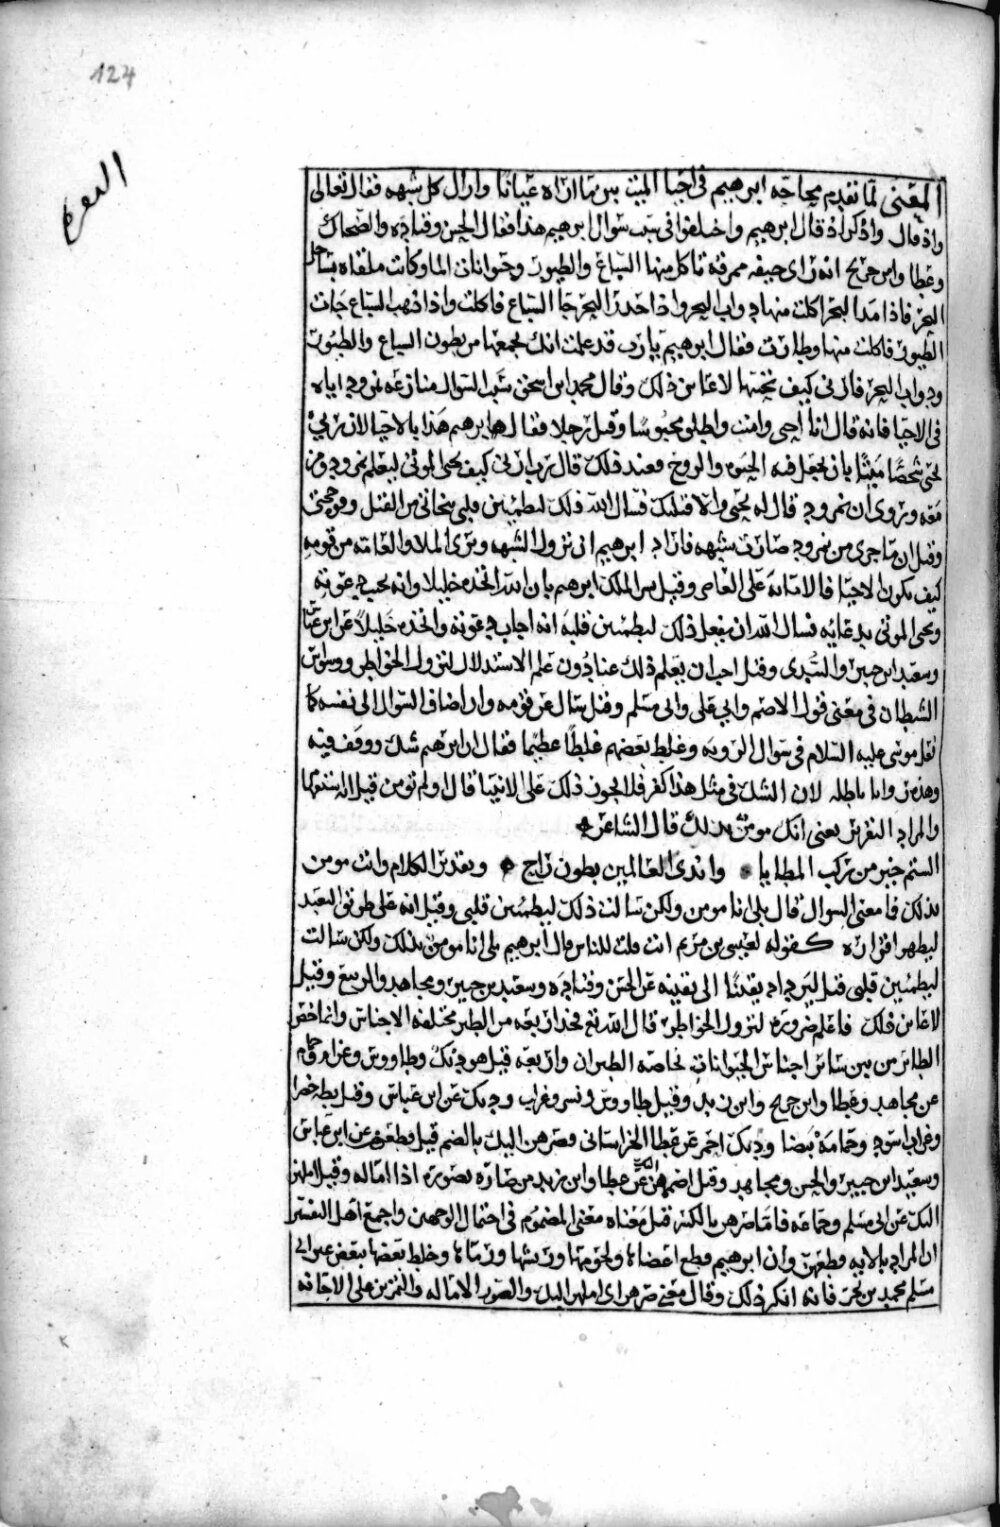 124
البقرة
المعنى لما تقدم محاجه ابرهيم في احيا الميت بين ما اراه عيانا وازال كل شبهه فقال تعالى
واذ قال واذكر اذ قال ابرهيم واختلفوا في سبب سوال ابرهيم هذا فقال الحسن وقتاده والضحاك
وعطا وابن جريج انه راى جيفه ممزقه تاكل منها السباع والطيور وحيوانات الما وكانت ملقاه بساحل
البحر فاذا مد البحر اكلت منها دواب البحر واذا جزر البحر جا السباع فاكلت واذا ذهب السباع جات
الطيور فاكلت منها وطارت فقال ابرهيم يا رب قد علمت انك تجمعها من بطون السباع والطيور
ودواب البحر فارني كيف تحييها لاعاين ذلك وقال محمد ابن اسحق سبب السوال منازعه نمرود اياه
في الاحيا فانه قال انا احيي واميت واطلق محبوسا وقتل رجلا فقال ابرهيم هذا باحيا لان ربي
يحيي شخصا ميتا بان يجعل فيه الحيوه والروح فعند ذلك قال رب ارني كيف تحيي الموتى ليعلم نمرود ومن
معه وروى ان نمرود قال له يحيي والا قتلتك فسال الله ذلك ليطمئن قلبي بنجاتي من القتل وقوه حجتي
وقيل ان ما جرى من نمرود صارت شبهه فاراد ابرهيم ان تزول الشبهه ويرى الملا والعامه من قومه
كيف يكون الاحيا قال الامام على القاضي وقيل بشر الملك ابرهيم بان الله اتخذه خليلا وانه يجيب دعوته
ويحيي الموتى بدعايه فسال الله ان يفعل ذلك ليطمئن قلبه انه اجاب دعوته واتخذه خليلا عن ابن عباس
وسعيد ابن جبير والسدي وقيل احب ان يعلم ذلك عيانا دون علم الاستدلال لتزول الخواطر ووسواس
الشيطان في معنى قول الاصم وابي علي وابي مسلم وقيل سال عن قومه وان اضاف السوال الى نفسه كما
فعل موسى عليه السلام في سوال الرويه وغلط بعضهم غلطا عظيما فقال ان ابرهيم شك ووقف فيه
وهذه روايا باطله لان الشك في مثل هذا كفر فلا يجوز ذلك على الانبيا قال اولم تومن قيل انه استفهام
والمراد التقرير يعني انك مومن بذلك قال الشاعر
الستم خير من ركب المطايا واندى العالمين بطون راح وتقدير الكلام وانت مومن
بذلك فما معنى السوال قال بلى انا مومن ولكن سالت ذلك ليطمئن قلبي وقيل انه على طريق التعبد
ليظهر اقراره كقوله لعيسى بن مريم انت قلت للناس قال ابرهيم بلى انا مومن بذلك ولكن سالت
ليطمئن قلبي قيل ليزداد يقينا الى يقينه عن الحسن وقتاده وسعيد بن جبير ومجاهد والربيع وقيل
لاعاين ذلك فاعلم ضروره لتزول الخواطر قال الله تع فخذ اربعه من الطير مختلفه الاجناس وانما خص
الطاير من بين ساير اجناس الحيوانات لخاصه الطيران واربعه قيل هو ديك وطاووس وغراب وحمام
عن مجاهد وعطا وابن جريج وابن زيد وقيل طاووس ونسر وغراب وديك عن ابن عباس وقيل بطه خضرا
وغراب اسود وحمامة بيضا وديك احمر عن عطا الخراساني وصرهن اليك بالضم قيل قطعهن عن ابن عباس
وسعيد ابن جبير والحسن ومجاهد وقيل اضممهن اليك عن عطا وابن زيد من صاره يصوره اذا اماله وقيل املهن
اليك عن ابي مسلم وجماعه فاما صرهن بالكسر قيل معناه معنى المضموم في احتمال الوجهين واجمع اهل التفسير
ان المراد بالايه قطعهن وان ابرهيم قطع اعضاها ولحومها وريشها ودماها وخلط بعضها ببعض غير ابي
مسلم محمد بن بحر فانه انكر ذلك وقال معنى صرهن اي املهن اليك والصور الاماله والتمرين على الاجابه